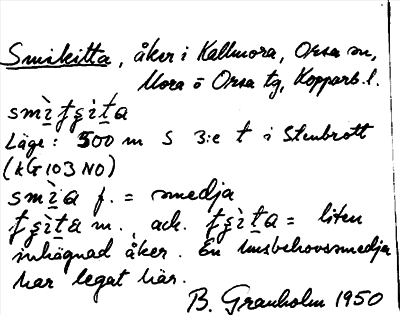 Smikitta, åker i Kallmora, Orsa sn,
Mora o Orsa tg, Kopparb. l.
smi̠̇tşi̇ta
Läge: 500 m S 3:e t i Stenbrott
(kG 103 NO)
smi̠̇a f. = smedja
tşi̇ta m., ack. tşi̇ta = liten
inhägnad åker. En husbehovssmedja
har legat här.
B. Granholm 1950